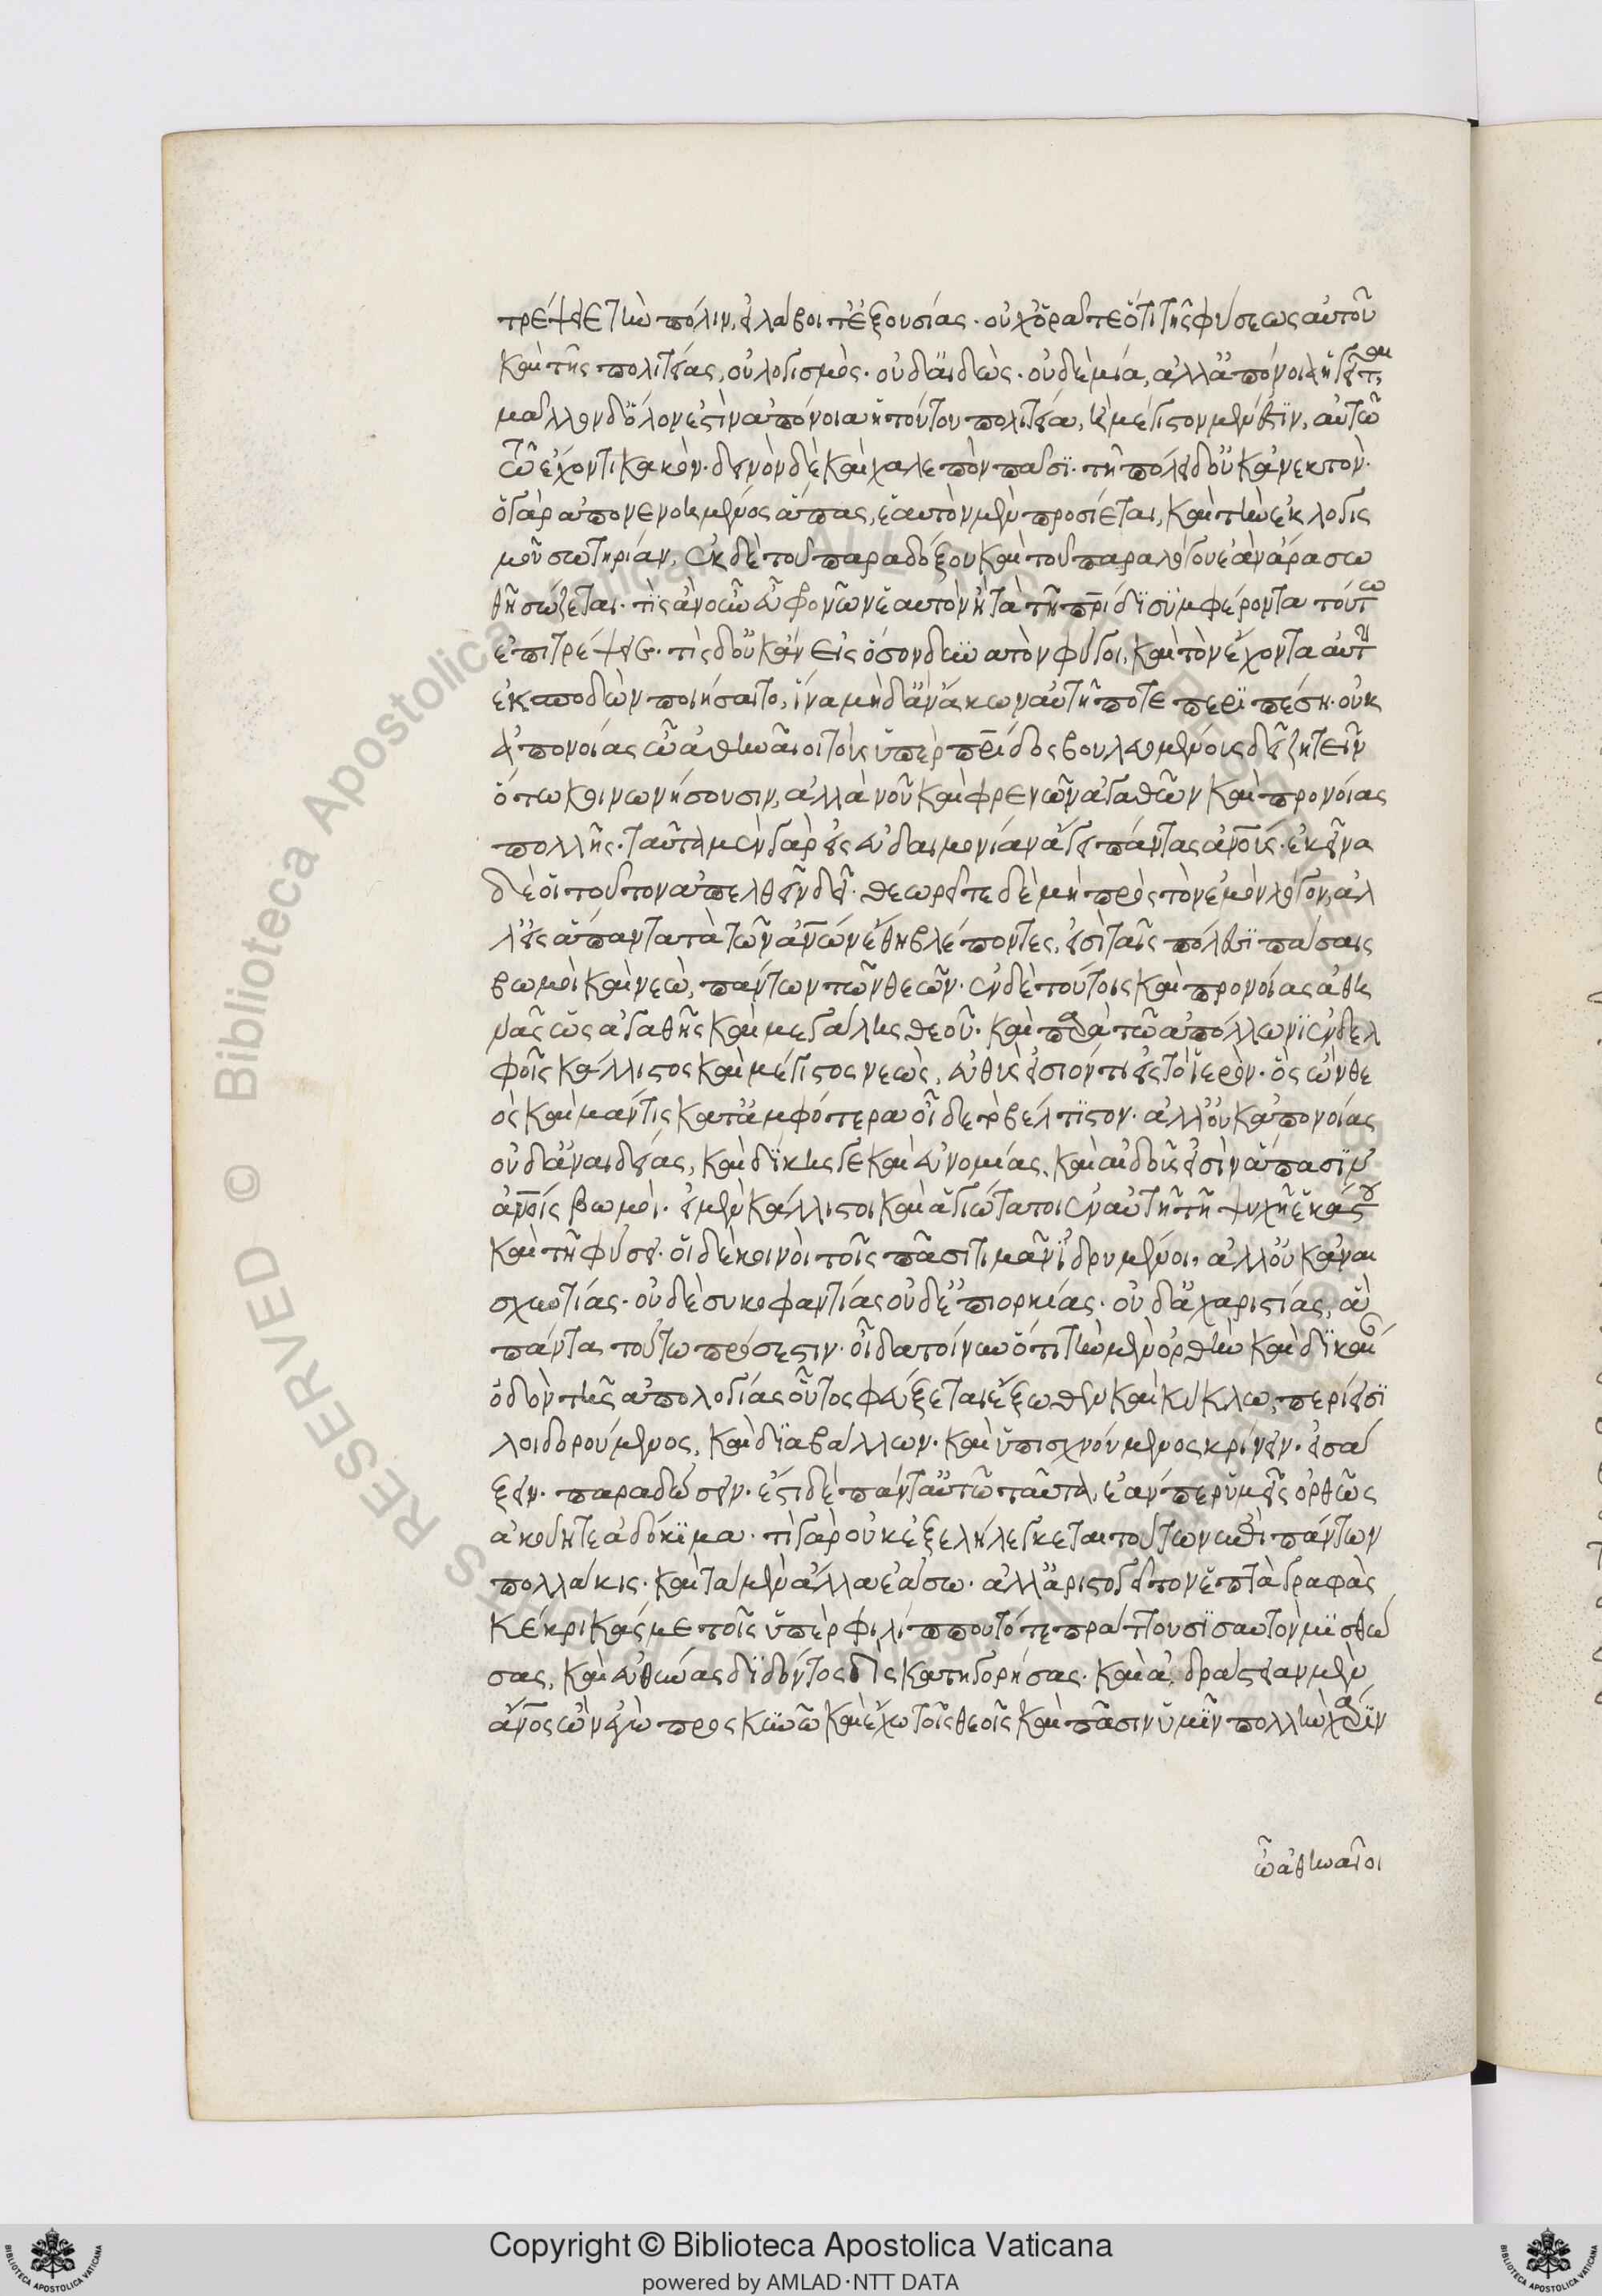 τρέψειε τὴν πόλιν, εἰ λάβοιτ᾽ ἐξουσίας. οὐχ ὁρᾶτε ὅτι τῆς φύσεως αὐτοῦ
καὶ τῆς πολιτείας, οὐ λογισμὸς. οὐδ᾽ αἰδὼς. οὐδὲ μία, ἀλλ᾽ ἀπόνοι᾽ ἡγεῖται
μᾶλλον δ᾽ ὅλον ἐστὶν ἀπόνοια ἡ τούτου πολιτεία, ἣ μέγιστον μέν ἐστιν, αὐτῶ
τῶ ἔχοντι κακὸν. δεινὸν δὲ καὶ χαλεπὸν πᾶσι. τῆ πόλει δ᾽ οὐκ ἀνεκτὸν.
ὁ γὰρ ἀπονενοημένος ἅπας, ἑαυτὸν μὲν προσίεται, καὶ τὴν ἐκ λογισ
μοῦ σωτηρίαν, ἐκ δὲ τοῦ παραδόξου καὶ τοῦ παραλόγου ἐὰν ἄρα σω
θῆ σώζεται. τίς ἂν οὖν εὖ φρονῶν ἑαυτὸν ἢ τὰ τῆ πρίδι συμφέροντα τούτω
ἐπιτρέψειε. τίς δ᾽ οὐκ ἂν εἰς ὅσον δυνατὸν φύγοι, καὶ τὸν ἔχοντα αὐτὴν
ἐκποδὼν ποιήσαιτο, ἵνα μηδ᾽ ἂν ἄκων αὐτῆ ποτε περιπέση. οὐκ
ἀπονοίας ὦ ἀθηναῖοι τοῖς ὑπὲρ πρίδος βουλευομένοις δεῖ ζητεῖν
ὅτω κοινωνήσουσιν, ἀλλὰ νοῦ καὶ φρενῶν ἀγαθῶν καὶ προνοίας
πολλῆς. ταῦτα μὲν γὰρ εἰς εὐδαιμονίαν ἄγει πάντας ἀνοῖς. ἐκεῖνα
δὲ οἷ τοῦτον ἀπελθεῖν δεῖ. θεωρεῖτε δὲ μὴ πρὸς τὸν ἐμὸν λόγον, ἀλ
λ᾽ εἰς ἅπαντα τὰ τῶν ἀνῶν ἔθη βλέποντες, εἰσὶ ταῖς πόλεσι πάσαις
βωμοὶ καὶ νεὼ, πάντων τῶν θεῶν. ἐν δὲ τούτοις καὶ προνοίας ἀθη
νᾶς ὡς ἀγαθῆς καὶ μεγάλης θεοῦ. καὶ παρὰ τῶ ἀπόλλωνι ἐν δελ
φοῖς κάλλιστος καὶ μέγιστος νεὼς, εὐθὺς εἰσιόντι εἰς τὸ ἱερὸν. ὃς ὢν θε
ὸς καὶ μάντις κατ᾽ ἀμφότερα οἶδε τὸ βέλτιστον. ἀλλ᾽ οὐκ ἀπονοίας
οὐδ᾽ ἀναιδείας, καὶ δίκης γε καὶ εὐνομίας, καὶ αἰδοῦς εἰσὶν ἅπασιν
ἀνοῖς βωμοὶ. οἱ μὲν κάλλιστοι καὶ ἁγιώτατοι ἐν αὐτῆ τῆ ψυχῆ ἑκάστου
καὶ τῆ φύσει. οἱ δὲ κοινοὶ τοῖς πᾶσι τιμᾶν ἱδρυμένοι, ἀλλ᾽ οὐκ ἀναι
σχυντίας. οὐδὲ συκοφαντίας οὐδ᾽ ἐπιορκίας. οὐδ᾽ ἀχαριστίας, ἃ
πάντα τούτω πρόσεστιν. οἶδα τοίνυν ὅτι τὴν μὲν ὀρθὴν καὶ δικαί
ὁδὸν τῆς ἀπολογίας οὗτος φεύξεται ἔξωθεν καὶ κύκλω, περίεισι
λοιδορούμενος, καὶ διαβάλλων. καὶ ὑπισχνούμενος κρίνειν. εἰσά
ξειν. παραδώσειν. ἔστι δὲ πάντ᾽ αὐτῶ ταῦτα, ἐάν περ ὑμεῖς ὀρθῶς
ἀκούητε ἀδόκιμα. τί γὰρ οὐκ ἐξελήλεγκται τούτων ἐπὶ πάντων
πολλάκις. καὶ τὰ μὲν ἄλλα ἐάσω. ἀλλ᾽ ἀριστόγειτον ἑπτὰ γραφὰς
κέκρικάς με τοῖς ὑπὲρ φιλίππου τότε πράττουσι σαυτὸν μισθώ
σας, καὶ εὐθύνας διδόντος δὶς κατηγορήσας. καὶ ἀδράστειαν μὲν
ἄνος ὢν ἐγὼ προσκυνῶ καὶ ἔχω τοῖς θεοῖς καὶ πᾶσιν ὑμῖν πολλὴν χάριν
ὦ ἀθηναῖοι
Copyright © Biblioteca Apostolica Vaticana
powered by AMLAD·NTT DATA